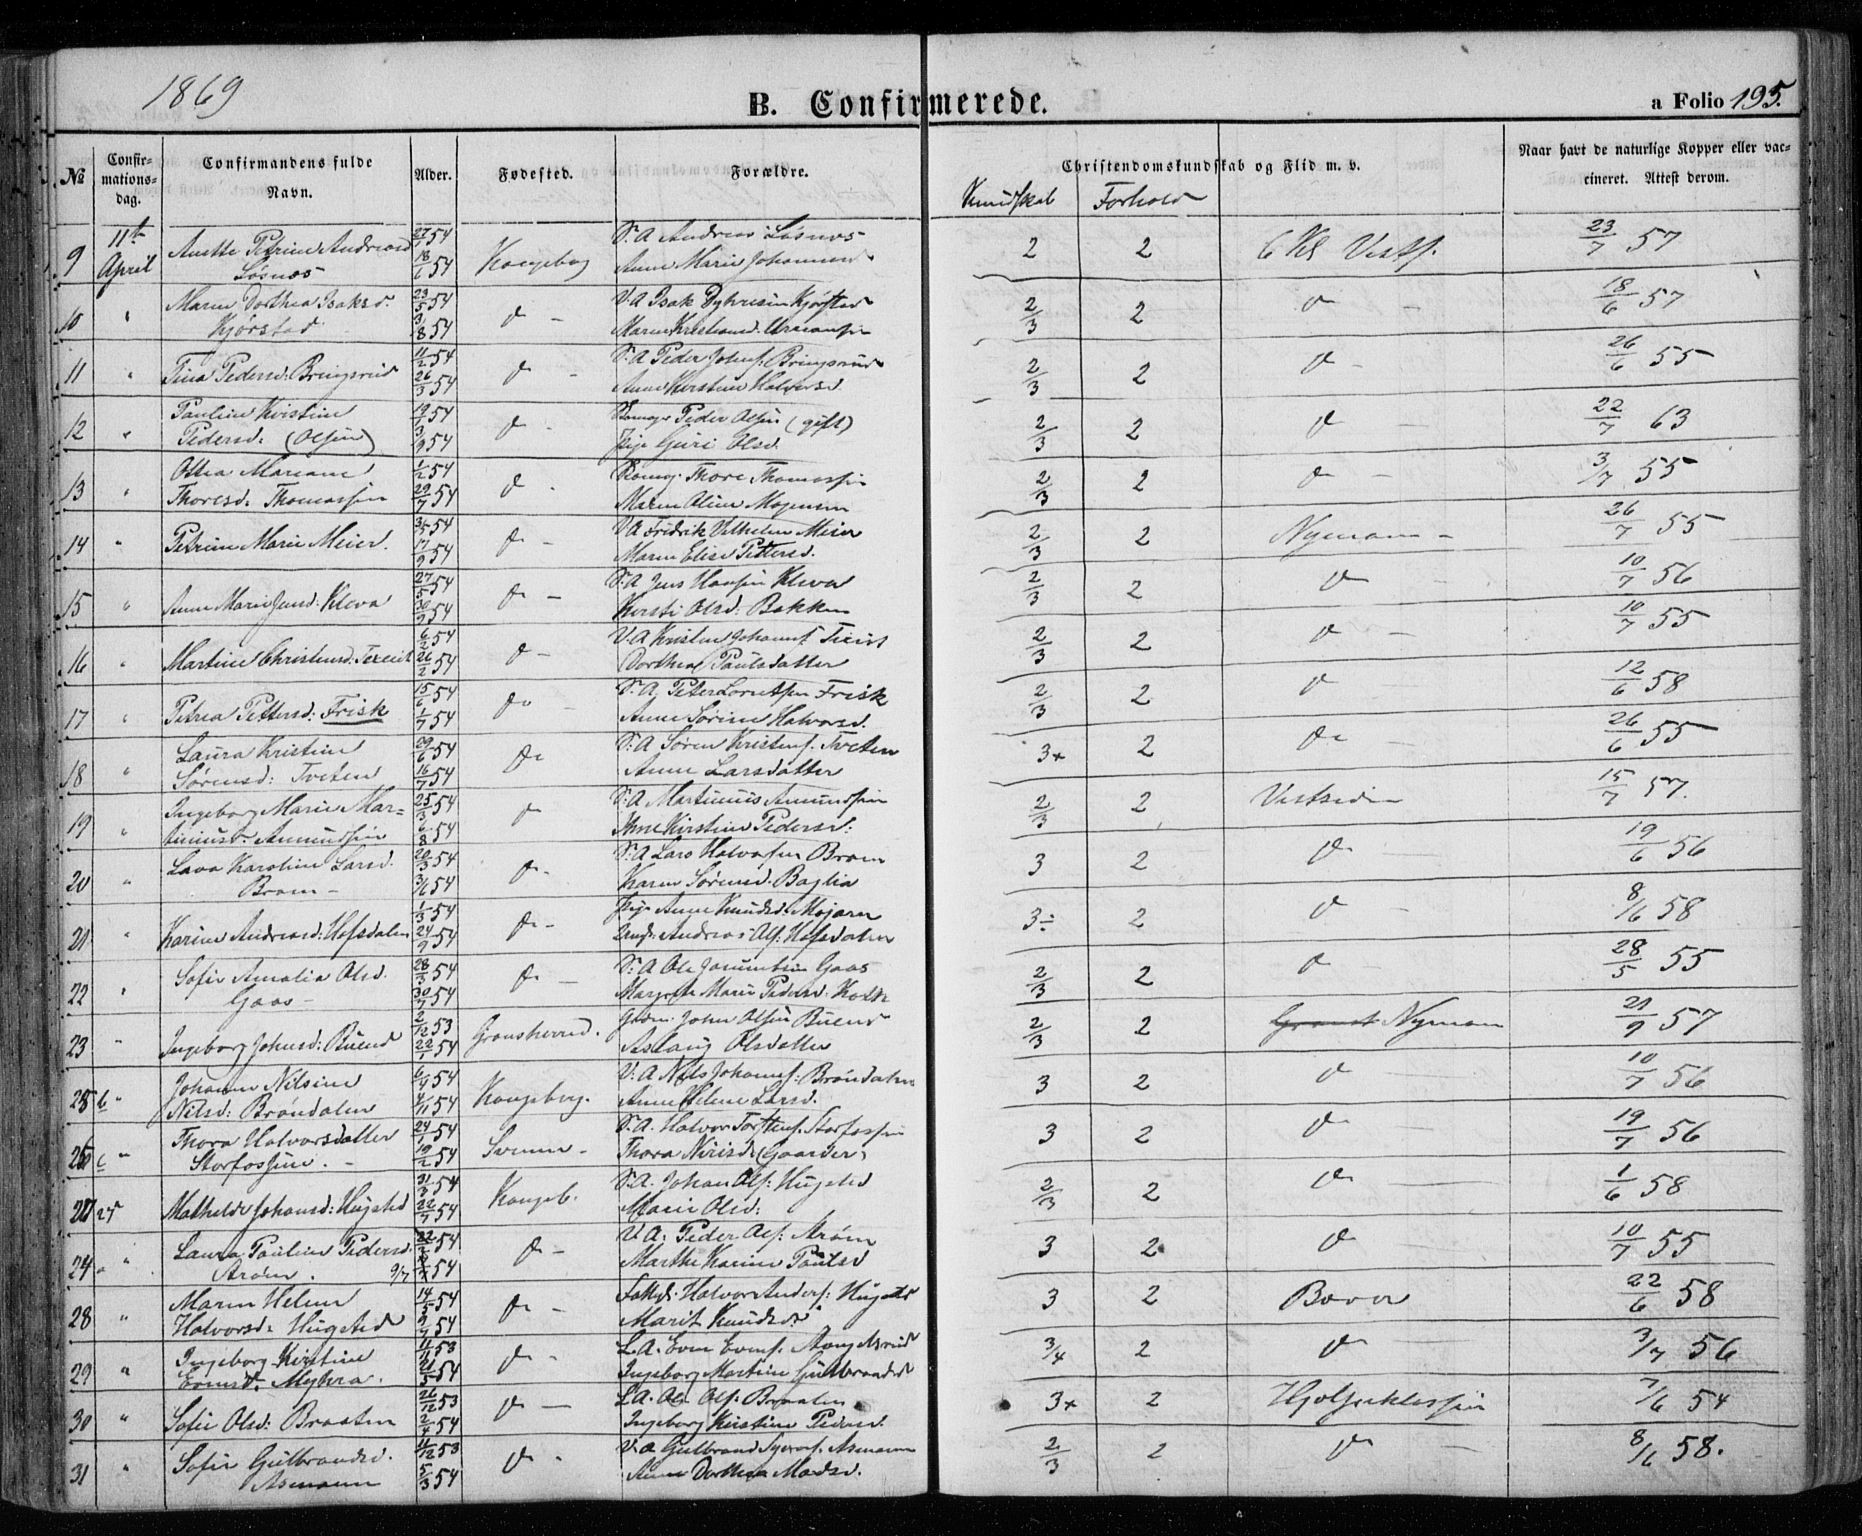 1869
B. Confirmerede.
a Folio 195.
№ Confirmationsdag. Confirmandens fulde Navn. Alder. Fødested. Forældre. Christendomskundskab og Flid m. v. Naar havt de naturlige Kopper eller vaccineret. Attest derom.
Kundskab Forhold
9 11te April Anette Petrine Andreasd Løsnæs 27/1 54 18/6 54 Kongsberg S. A Andreas Løsnæs Anne Marie Johannesd 2 2 6 Kl Vests. 23/7 57
10 " Maren Dorthea Isaksd. Kjørstad 23/5 54 3/8 54 do — V. A Isak Kjørstad Maren Kristiansd. 2/3 2 do — 18/6 57
11 " Tina Pedersd. Bringsrud 11/2 54 26/3 54 do — S. A Peder Johns. Bringsrud Anne Kirstine Halvorsd 2/3 2 do — 26/6 55
12 " Pauline Kristine Pedersd: (Olsen) 19/1 54 3/9 54 do - Peder Olsen (gift) Pige Guri Olsd. 2/3 2 do — 22/7 63
13 " Othea Mariane Thoresd. Thomassen 1/2 54 29/7 54 do - Thore Thomassen Maren Oline Mogensen 2/3 2 do — 3/7 55
14 " Petrine Marie Meier. 3/5 54 17/9 54 do — V A Fredrik Vilhelm Meier Maren Elise Pettersd. 2/3 2 Nymoen — 26/7 55
15 " Anne Marie Jensd: Kleva 27/5 54 30/9 54 do — S. A Jens Hansen Kleva Kirsti Olsd: Bakken 2/3 2 do 10/7 56
16 " Martine Christensd: 6/2 54 26/2 54 do — V A Kristen Johanns. Dorthea Paulsdatter 2/3 2 do — 10/7 55
17 " Petrea Pettersd: Frisk 15/6 54 1/7 54 do — S. A. Peter Lorentsen Frisk Anne Sørine Halvorsd. 2/3 2 do 12/6 58
18 " Laura Kristine Sørensd: Tveten 29/6 54 16/7 54 do S. A Søren Kristens. Tveten Anne Larsdatter 3+ 2 do — 26/6 55
19 " Ingeborg Marie Martinusd. Amundsen 25/3 54 6/8 54 do S. A Martinius Amundsen Anne Kirstine Pedersd: 2/3 2 Vestsiden 15/7 57.
20 " Lava Karoline Larsd. Bram — 20/3 54 3/6 54 do - S. A Lars Halvorsen Bram Karen Sørensd. Baglia 3 2 do — 19/6 56
21 " Karine Andreasd: Hofsdalen 1/3 54 24/9 54 do — Pige Anne Knudsd. Ungk. Andreas Ols: Hofsdalen 3÷ 2 do — 8/6 58
22 " Sofie Amalia Olsd. Gaas — 28/3 54 30/7 54 do — S. A Ole Gaas Margrete Marie Pedersd. 2/3 2 do 28/5 55
23 " Ingeborg Johnsd: Buend 2/12 53 22/1 54 Gransherred. John Olsen Buend Aslaug Olsdatter 2/3 2 Nymoen 21/9 57
25 6 " Johanne Nilsine Nilsd: Brøndalen 6/4 54 4/11 54 Kongsberg. V. A Nils Johanns: Brøndalen Anne Helene Larsd. 3 2 do 10/7 56
26 6 " Thora Halvorsdatter Storfossene. — 24/1 54 19/2 54 Svenne — S. A. Halvor Torstens. Storfossen Thora (Gaarder) 3 2 do 19/7 56
27 25 Mathilde Johansd: Hugsted 31/3 54 22/7 54 Kongsb. S. A. Johan Ols: Hugsted Marie Olsd: 2/3 2 do — 1/6 58
24 " Laura Pauline Pedersd. Strøm. 9/7 22/2 54 54 do — V. A. Peder Ols: Strøm Marthe Karine Paulsd 3 2 do 10/7 55
28 " Maren Helene Halvorsd. Hugsted 14/5 54 9/7 54 do — Halvor Anders: Hugsted Marit Knudsd: 3 2 Bæver 22/6 58
29 " Ingeborg Kirstine Evensd. Myhra. 11/11 53 21/5 54 do — L. A. Even Evens. Ingeborg Martine Gulbrandsd 3/4 2 do 3/7 56
30 " Sofie Olsd: Braaten 26/12 53 2/4 54 do — L. A. Ole Ols. Braaten Ingeborg Kirstine Pedersd. 3+ 2 Hjelpeklassen 7/6 54
31 " Sofie Gulbrandsd. Asmoen 11/12 53 5/3 54 do - V. A Gulbrand Asmoen Anne Dorthea Madsd. 2/3 2 do — 8/6 58.